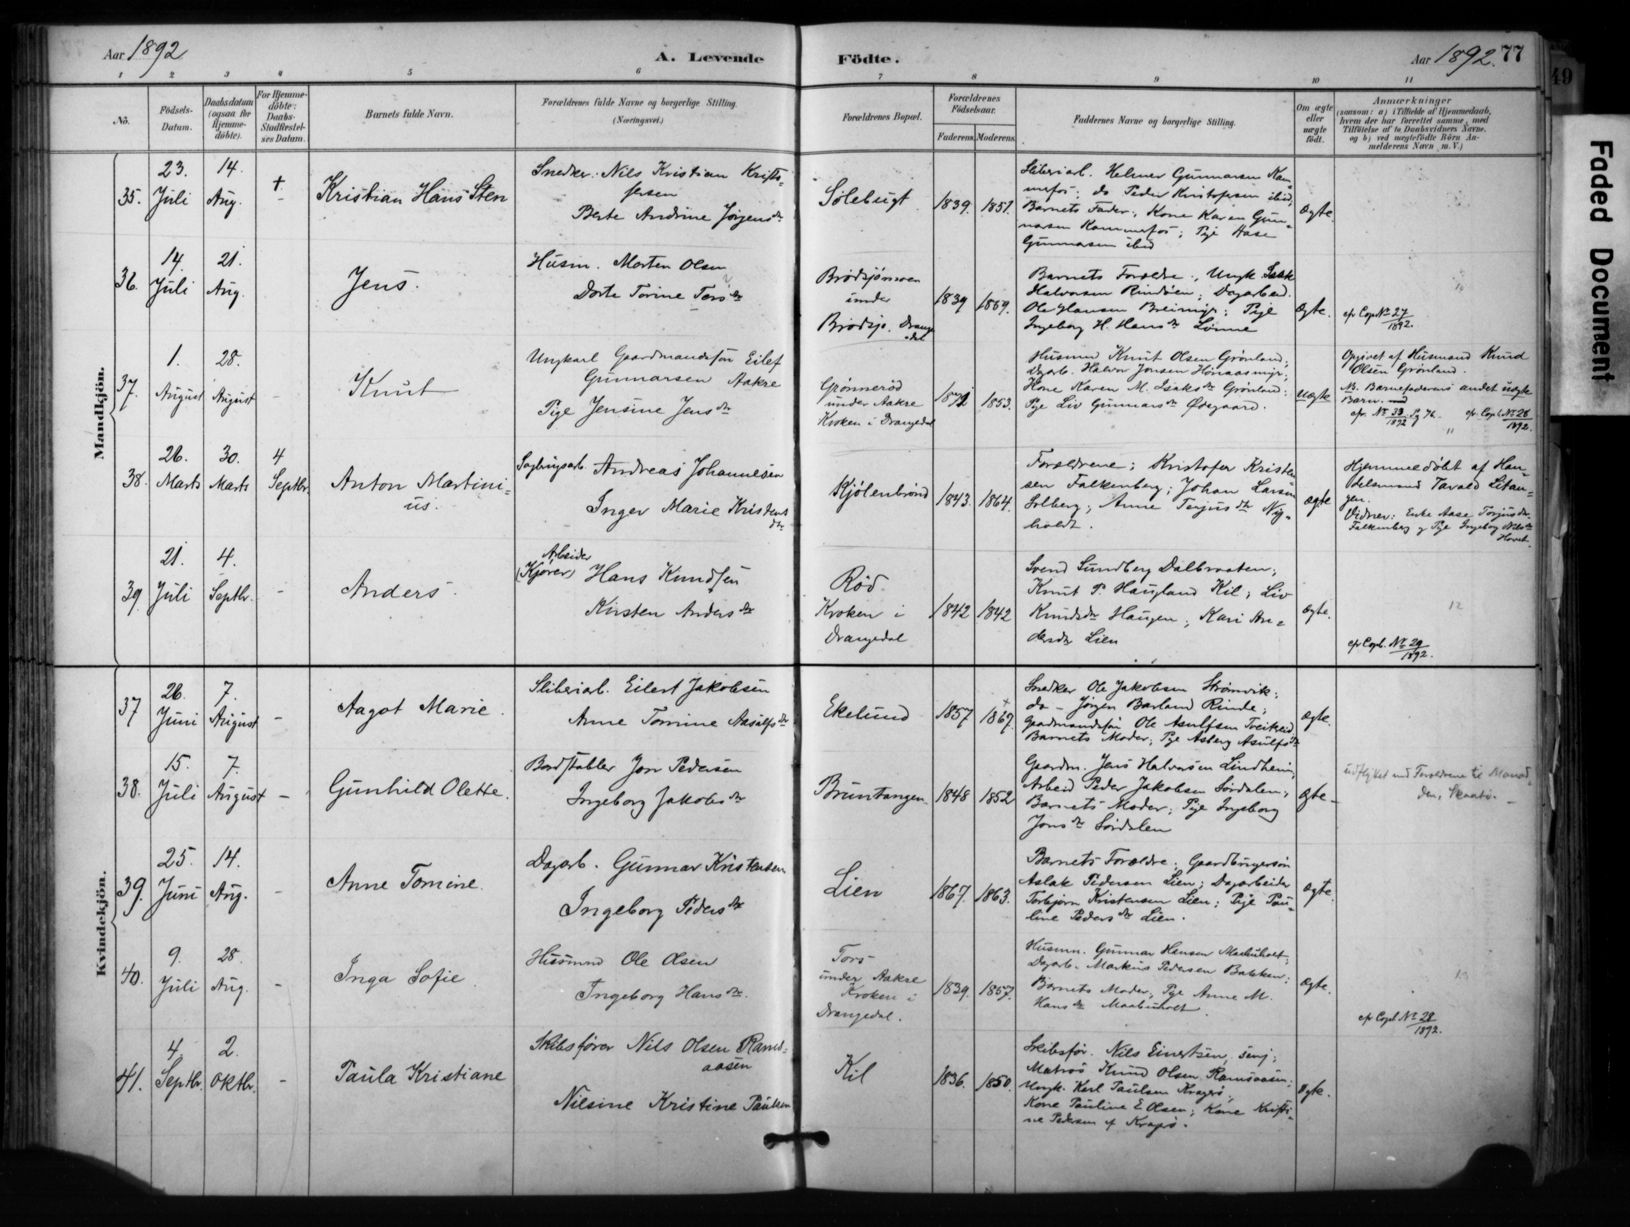 Aar 1892
A. Levende
Födte.
Aar 1892. 77
49
Faded Document
1 2 3 4 5 6 7 8 9 10 11
No.
Födsels-Datum.
Daabsdatum (ogsaa for Hjemme-döbte).
For Hjemme-döbte: Daabs-Stadfæstel-ses Datum.
Barnets fulde Navn.
Forældrenes fulde Navne og borgerlige Stilling.
(Næringsvei.)
Forældrenes Bopæl.
Forældrenes Födselsaar.
Faderens. Moderens.
Faddernes Navne og borgerlige Stilling.
Om ægte eller uægte födt.
Anmærkninger
(saasom: a) i Tilfælde af Hjemmedaab,
hvem der har forrettet samme, med
Tilföielse af to Daabsvidners Navne,
og b) ved uægtefödte Börn An-
melderens Navn m. V.)
Mandkjön.
35. 23. Juli 14. Aug. +
Kristian Hans Sten
Snedker. Nils Kristian Kristo-
fersen
Berte Andrine Jörgensdr
Sölebugt 1839. 1851.
Sliberiarb. Helmer Gunnarsen Kam-
mefos; do Peder Kristofersen ibid;
Barnets Fader; Kone Karen Gun-
narsen Kammefos; Pige Aase
Gunnarsen ibid
ægte.
36. 14. Juli 21. Aug.
Jens.
Husm. Morten Olsen
Dorte Torine Torsdr
Brödsjömoen
under
Brödsjö. Drange-
dal
1839 1859.
Barnets Forældre; Ungk. Isak
Halvorsen Rindöen; Dagarbeid.
Ole Hansen Breimyr; Pige
Ingeborg H. Hansdr Lönne
ægte.
cfr Cop. No 27
1892.
37. 1. August 28. August -
Knut
Ungkarl Gaardmandssön Eilef
Gunnarsen Aakre
Pige Jensine Jensdr
Grönneröd
under Aakre
Kroken i Drangedal
1872 1853.
Husmd Knut Olsen Grönland;
Dagarb. Halvor Jensen Hönaasmyr;
Kone Karen M. Isaksdr Grönland;
Pige Liv Gunnarsdr Ödegaard.
uægte
Opgivet af Husmand Knud
Olsen Grönland.
NB. Barnefaderens andet uægte
Barn.
cfr. No 33 1892 Pg 74. cfr. Copl. No 28
1892.
38. 26. Marts 30. Marts 4 Septbr.
Anton Martini-
us.
Sagbrugsarb. Andreas Johannesen
Inger Marie Kristens
dr
Kjölenbrönd 1843. 1864.
Forældrene; Kristofer Kristen-
sen Falkenberg; Johan Larsen
Solberg; Anne Terjesdr Ny-
holdt.
ægte
Hjemmedöbt af Han-
delsmand Tarald Litan-
gen.
Vidner: Enke Aase Torjusdr
Falkenberg og Pige Ingeborg Nilsdr
Hovet.
39. 21. Juli 4. Septbr. -
Anders.
Arbeider
(Kjörer) Hans Knudsen
Kirsten Andersdr
Röd.
Kroken i
Drangedal
1842 1842
Svend Sundberg Dalbraaten;
Knut P. Haugland Kil; Liv
Knudsdr Haugen; Kari An-
dersdr Lien
ægte.
12
cfr Copl. No 29
1892.
Kvindekjön.
37 26. Juni 7. August -
Aagot Marie.
Sliberiarb. Eilert Jakobsen
Anne Tomine Asulfsdr
Ekelund 1857 1867.
Snedker Ole Jakobsen Strömvik;
do - Jörgen Barland Rinde;
Gaardmandssön Ole Asulfsen Tveitereid
Barnets Moder; Pige Asberg Asulfsdr
ægte.
38. 15. Juli 7. August -
Gunhild Olette.
Bordstabler Jon Pedersen
Ingeborg Jakobsdr
Bruntangen 1848 1852
Gaardm. Jens Halvorsen Lindheim;
Arbeid Peder Jakobsen Sördalen;
Barnets Moder; Pige Ingeborg
Jonsdr Sördalen
ægte -
udflyttet med Forældrene til
Skaatö. -
39. 25. Juni 14. Aug. -
Anne Tomine.
Dagarb. Gunnar Kristensen
Ingeborg Pedersdr
Lien 1867. 1863.
Barnets Forældre; Gaardbrugersön
Aslak Pedersen Lien; Dagarbeider
Torbjörn Kristensen Lien; Pige Pau-
line Pedersdr Lien.
ægte.
40. 9. Juli 28. Aug. -
Inga Sofie.
Husmand Ole Olsen
Ingeborg Hansdr.
Tors-
under Aakre
Kroken i
Drangedal.
1839. 1857.
Husmn. Gunnar Hansen Maabuholt;
Dagarb. Markus Pedersen Bakken;
Barnets Moder; Pige Anne M.
Hansdr Maabuholt.
ægte.
13
cfr Copl No 28
1892.
41. 4 Septbr. 2. Oktbr. -
Paula Kristiane
Skibsförer Nils Olsen Rams-
aasen
Nilsine Kristine Paulsen
Kil 1836. 1850.
Skibsför. Nils Einertsen, senj;
Matros Knud Olsen Ramsaasen;
Ungk. Karl Paulsen Kragerö;
Kone Pauline E Olsen; Kone Kristi-
ne Pedersen af Kragerö.
ægte.